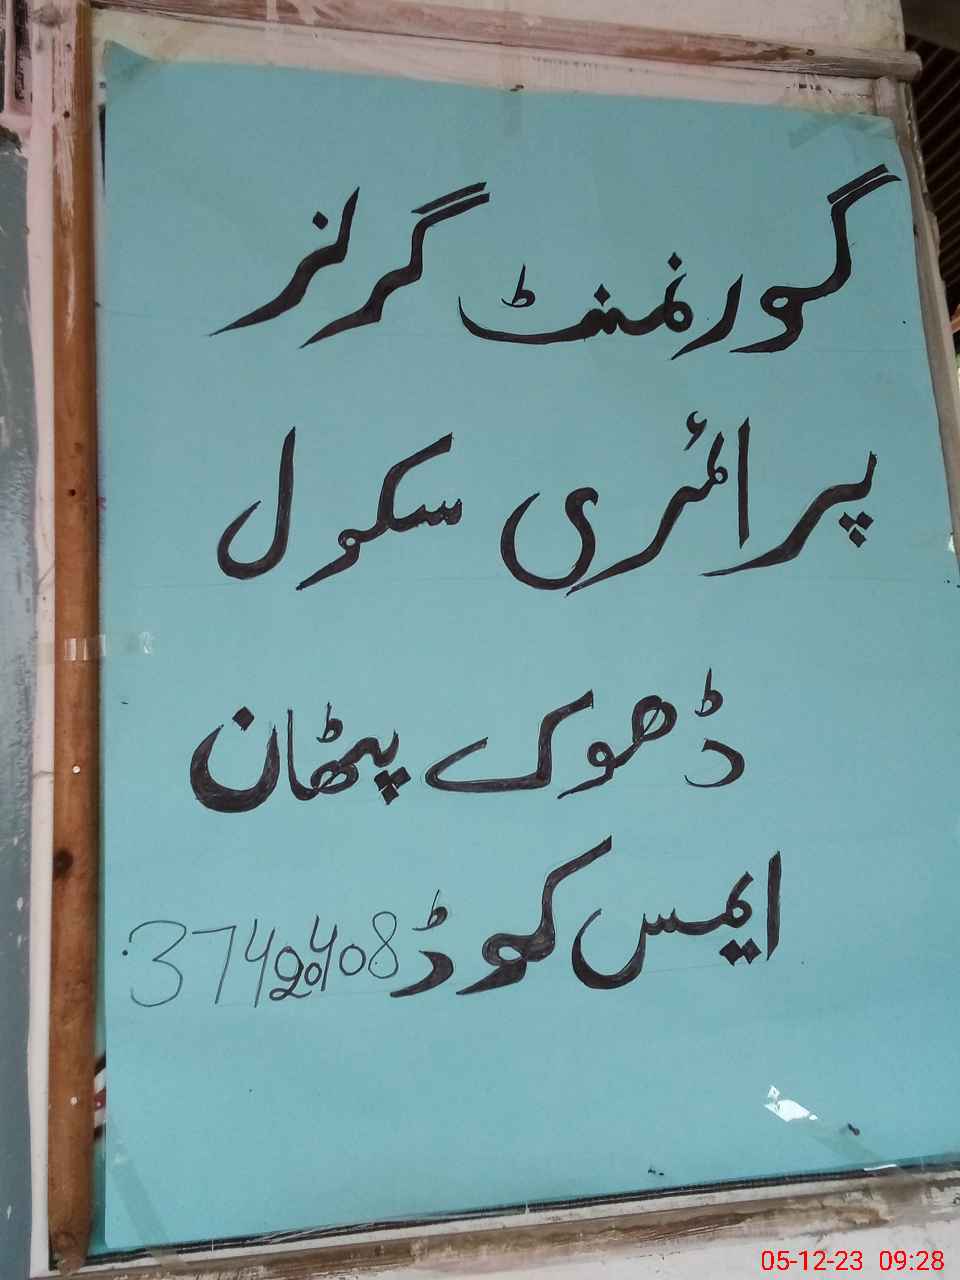 گورنمنٹ گرلز
پرائمری سکول
ڈھوک پٹھان
ایمس کوڈ 37420408
05-12-23 09:28